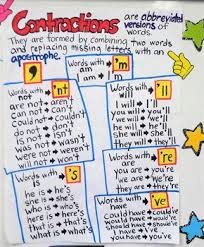 Contractions are abbreviated
versions of
words.
They are formed by combining two words
and replacing missing letters with an
apostrophe.
'
Words with 'm
am
I am → I'm
Words with 'nt
not
are not → aren't
can not → can't
could not → couldn't
do not → don't
is not → isn't
was not → wasn't
were not → weren't
will not → won't
Words with 'll
will
I will → I'll
you will → you'll
we will → we'll
he will → he'll
she will → she'll
they will → they'll
Words with 's
is
he is → he's
she is → she's
who is → who's
here is → here's
that is → that's
what is → what's
Words with 're
are
you are → you're
we are → we're
they are → they're
Words with 've
have
could have → could've
would have → would've
should have → should've
I have → I've
you have → you've